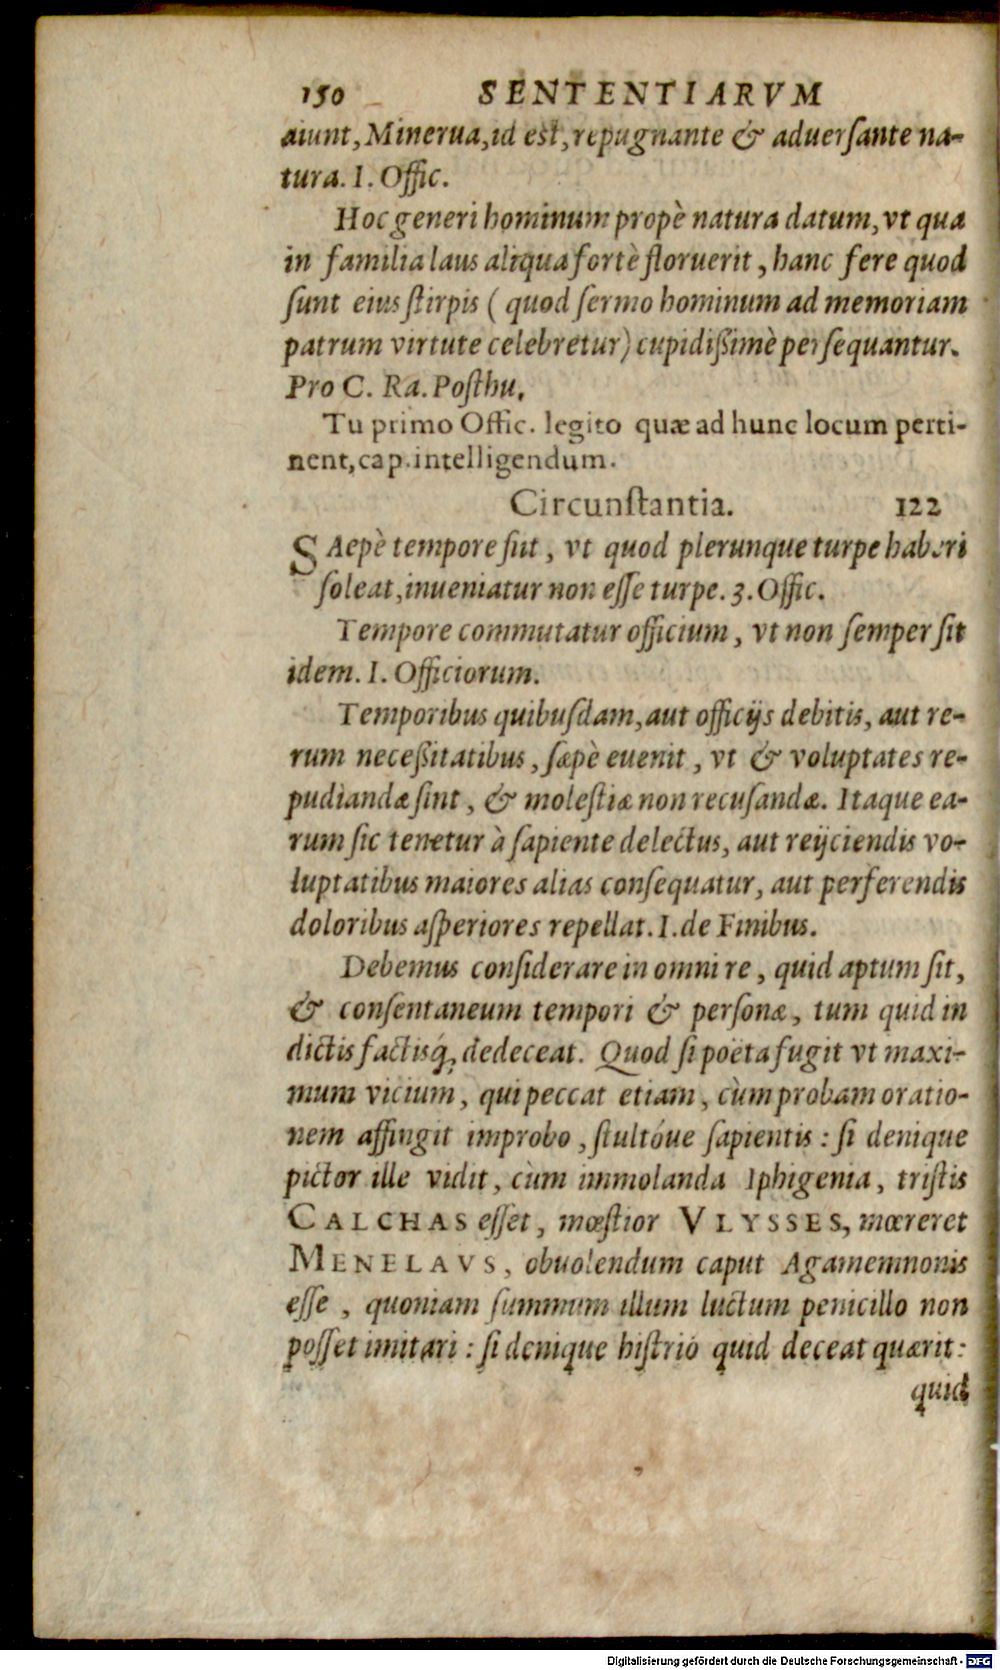 150 SENTENTIARVM
aiunt, Minerua, id est, repugnante & aduerſante na-
tura. I. Offic.
Hoc generi hominum propè natura datum, vt qua
in familia laus aliqua fortè floruerit, hanc fere quod
ſunt eius ſtirpis ( quod ſermo hominum ad memoriam
patrum virtute celebretur) cupidißimè perſequantur.
Pro C. Ra. Poſthu.
Tu primo Offic. legito quæ ad hunc locum perti-
nent, cap. intelligendum.
Circunſtantia. 122
SAepè tempore fiit, vt quod plerunque turpe haberi
ſoleat, inueniatur non eſſe turpe. 3. Offic.
Tempore commutatur officium, vt non ſemper ſit
idem. I. Officiorum.
Temporibus quibuſdam, aut officijs debitis, aut re-
rum neceßitatibus, ſæpè euenit, vt & voluptates re-
pudiandæ ſint, & moleſtiæ non recuſandæ. Itaque ea-
rum ſic tenetur à ſapiente delectus, aut reijciendis vo-
luptatibus maiores alias conſequatur, aut perferendis
doloribus aſperiores repellat. I. de Finibus.
Debemus conſiderare in omni re, quid aptum ſit,
& conſentaneum tempori & perſonæ, tum quid in
dictis factisq́; dedeceat. Quod ſi poëta fugit vt maxi-
mum vicium, qui peccat etiam, cùm probam oratio-
nem affingit improbo, ſtultóue ſapientis: ſi denique
pictor ille vidit, cùm immolanda Iphigenia, triſtis
CALCHAS eſſet, mœſtior VLYSSES, mœreret
MENELAVS, obuolendum caput Agamemnonis
eſſe, quoniam ſummum illum luctum penicillo non
poſſet imitari: ſi denique hiſtrio quid deceat quærit:
quid
Digitalisierung gefördert durch die Deutsche Forschungsgemeinschaft - DFG